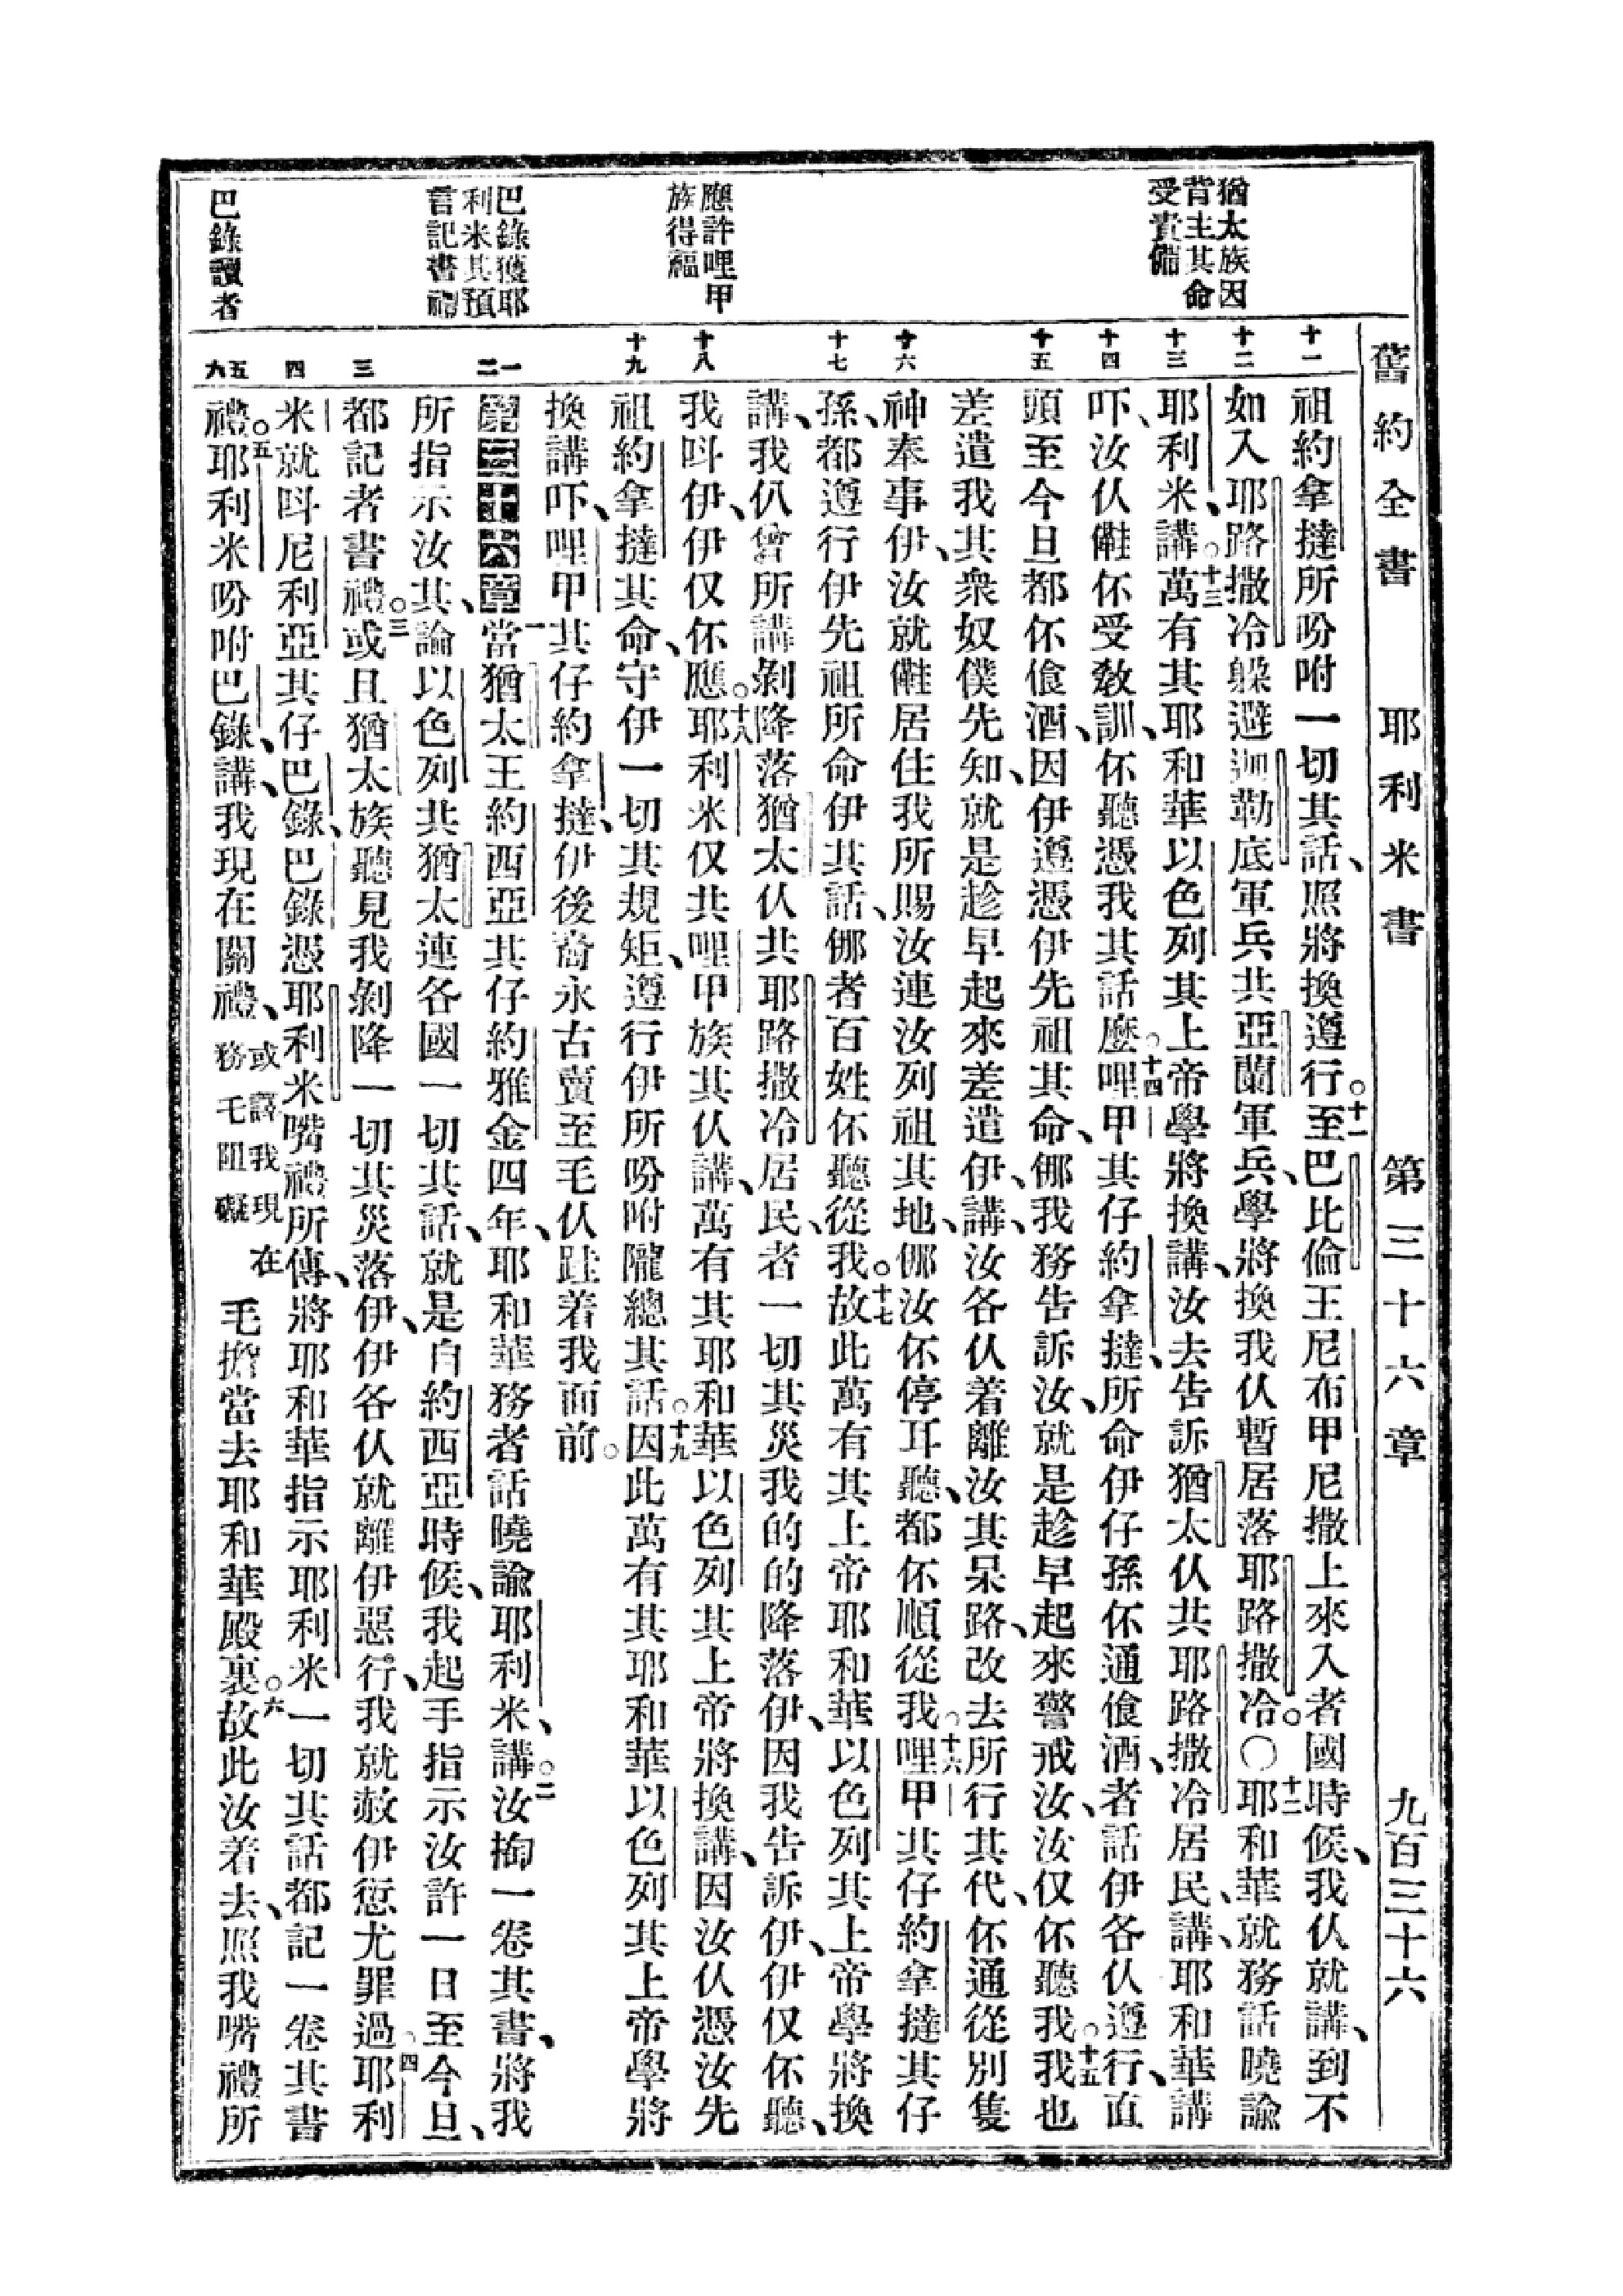 舊約全書 耶利米書 第三十六章 九百三十六
猶太族因
背主其命
受責備
應許哩甲
族得福
巴錄獲耶
利米其預
言記書禮
巴錄讀者
十一 十二 十三 十四 十五 十六 十七 十八 十九 一二 三 四 五六
祖約拿撻所吩咐一切其話、照將換遵行。十一至巴比倫王尼布甲尼撒上來入者國時候、我仈就講、到不
如入耶路撒冷躲避迦勒底軍兵共亞蘭軍兵、學將換我仈暫居落耶路撒冷。〇十二耶和華就務話曉諭
耶利米、講。十三萬有其耶和華以色列其上帝學將換講、汝去告訴猶太仈共耶路撒冷居民、講、耶和華講
吓、汝仈𣍐伓受敎訓、伓聽憑我其話麼。十四哩甲其仔約拿撻、所命伊仔孫伓通飡酒、者話伊各仈遵行、直
頭至今旦都伓飡酒、因伊遵憑伊先祖其命、𠆧我務告訴汝、就是趁早起來警戒汝、汝仅伓聽我。十五我也
差遣我其衆奴僕先知、就是趁早起來差遣伊、講、汝各仈着離汝其呆路、改去所行其代、伓通從別隻
神奉事伊、汝就𣍐居住我所賜汝連汝列祖其地、𠆧汝伓停耳聽、都伓順從我。十六哩甲其仔約拿撻其仔
孫、都遵行伊先祖所命伊其話、𠆧者百姓伓聽從我。十七故此萬有其上帝耶和華、以色列其上帝學將換
講、我仈曾所講剝降落猶太仈共耶路撒冷居民、者一切其災我的的降落伊、因我告訴伊、伊仅伓聽、
我呌伊、伊仅伓應。十八耶利米仅共哩甲族其仈講、萬有其耶和華以色列其上帝將換講、因汝仈憑汝先
祖約拿撻其命、守伊一切其規矩、遵行伊所吩咐隴總其話。十九因此萬有其耶和華以色列其上帝學將
換講吓、哩甲其仔約拿撻、伊後裔永古賣至毛仈跬着我面前。
第三十六章 一當猶太王約西亞其仔約雅金四年、耶和華務者話曉諭耶利米、講。二汝掏一卷其書、將我
所指示汝其、論以色列共猶太連各國一切其話、就是自約西亞時候、我起手指示汝許一日至今旦、
都記者書禮。三或且猶太族聽見我剝降一切其災落伊、伊各仈就離伊惡行、我就赦伊愆尤罪過。四耶利
米就呌尼利亞其仔巴錄、巴錄憑耶利米嘴禮所傳、將耶和華指示耶利米一切其話都記一卷其書
禮。五耶利米吩咐巴錄、講、我現在關禮、或譯我現在務乇阻礙毛擔當去耶和華殿裏。六故此汝着去、照我嘴禮所